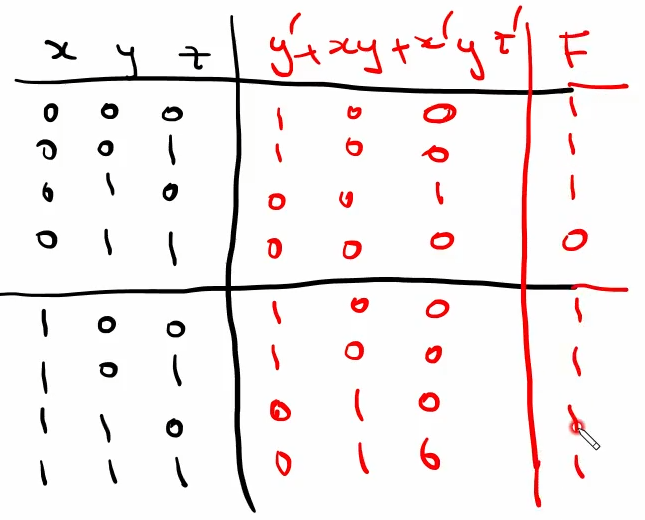 x y z y'+ xy + x'y z' F
0 0 0 1 0 0 1
0 0 1 1 0 0 1
0 1 0 0 0 1 1
0 1 1 0 0 0 0
1 0 0 1 0 0 1
1 0 1 1 0 0 1
1 1 0 0 1 0 1
1 1 1 0 1 0 1